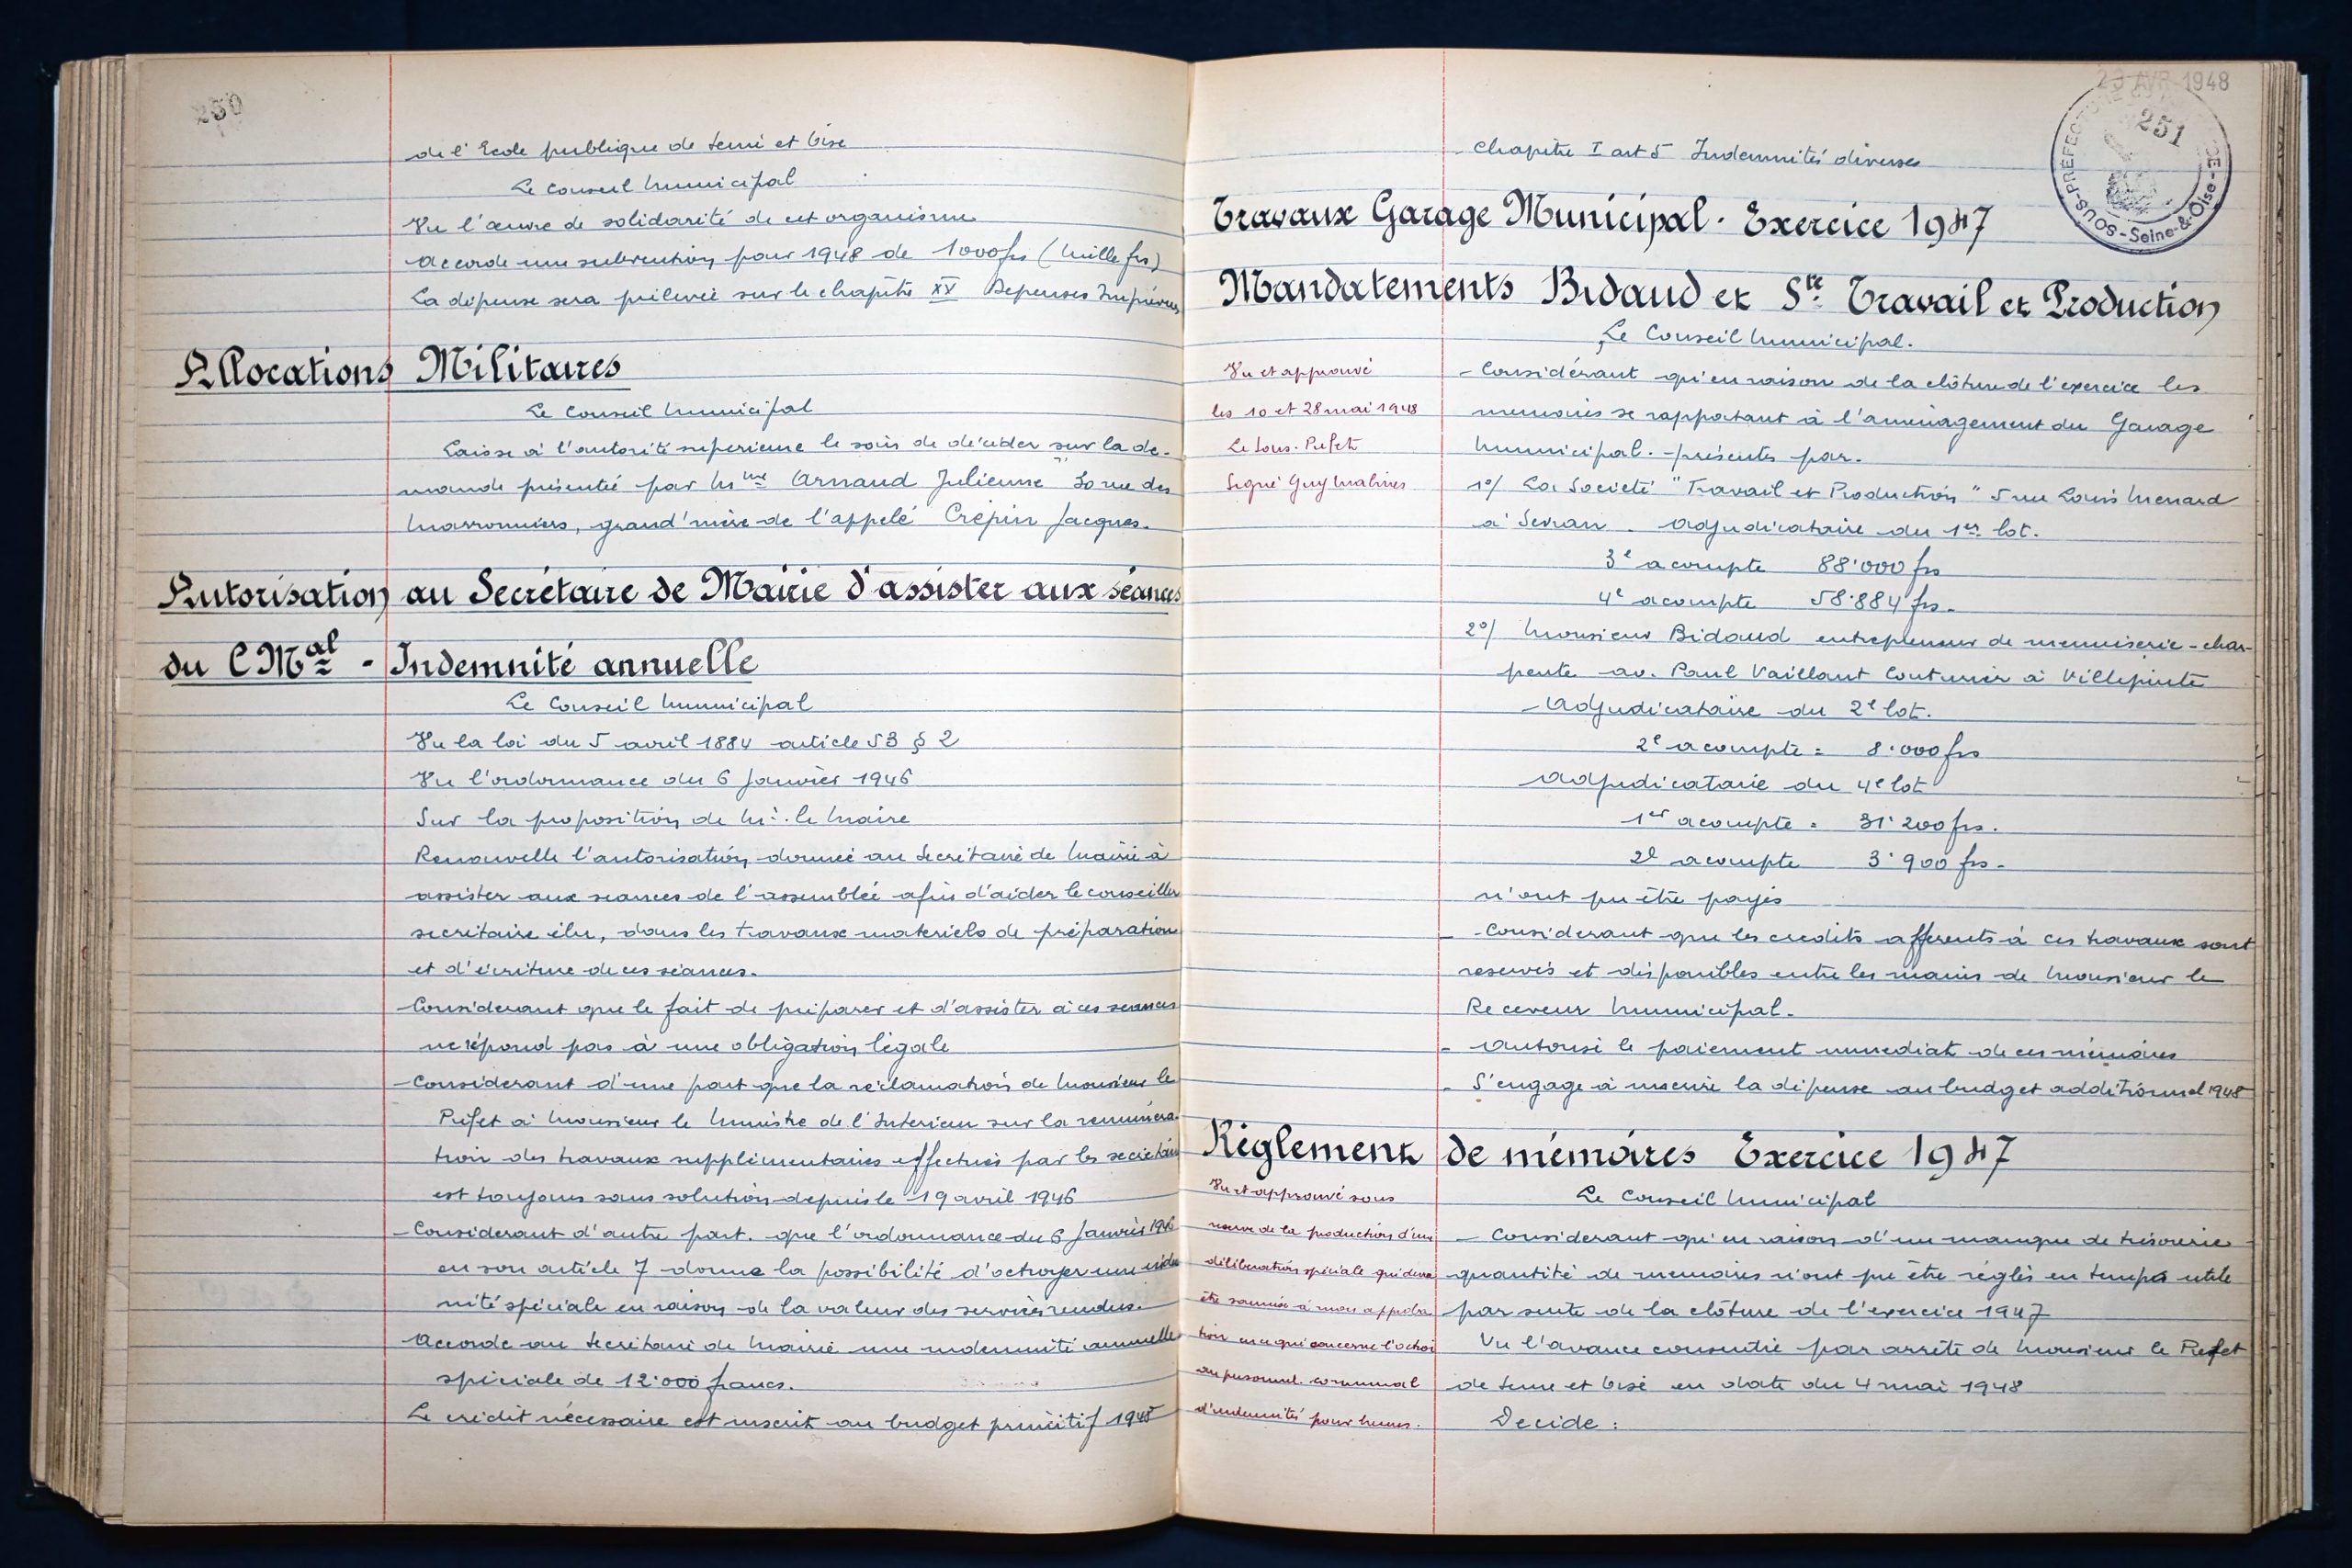 250
de l'Ecole publique de Seine et Oise
Le Conseil Municipal
Vu l'œuvre de solidarité de cet organisme
accorde une subvention pour 1948 de 1000 frs (Mille frs)
La dépense sera prélevée sur le chapitre XV Depenses Imprévues
Allocations Militaires
Le Conseil Municipal
Laisse à l'autorité superieure le soin de décider sur la de-
mande présentée par Mme Arnaud Julienne 30 rue des
Marronniers, grand'mère de l'appelé Crépin Jacques.
Autorisation au Secrétaire de Mairie d'assister aux séances
du C Mal - Indemnité annuelle
Le Conseil Municipal
Vu la loi du 5 avril 1884 article 53 § 2
Vu l'ordonnance du 6 Janvier 1946
Sur la proposition de Mr. le Maire
Renouvelle l'autorisation donnée au Secrétaire de Mairie à
assister aux seances de l'assemblée afin d'aider le conseiller
secretaire élu, dans les travaux materiels de préparation
et d'écriture de ces séances.
- Considerant que le fait de préparer et d'assister à ces seances
ne répond pas à une obligation légale
- Considerant d'une part que la réclamation de Monsieur le
Préfet à Monsieur le Ministre de l'Interieur sur la remunéra-
tion des travaux supplémentaires effectués par les secrétaires
est toujours sans solution depuis le 19 avril 1946
- Considerant d'autre part. que l'ordonnance du 6 Janvier 1946
en son article 7 donne la possibilité d'octroyer une indem
nité spéciale en raison de la valeur des services rendus.
Accorde au Secrétaire de Mairie une indemnité annuelle
spéciale de 12.000 francs.
Le crédit nécessaire est inscrit au budget primitif 1948
23 AVR 1948
251
SOUS-PRÉFECTURE
Seine-&-Oise
- Chapitre I art 5 Indemnités diverses
Travaux Garage Municipal - Exercice 1947
Mandatements Bidaud et Sté Travail et Production
Le Conseil Municipal.
Vu et approuvé
les 10 et 28 mai 1948
Le Sous-Préfet
Signé Guy Malines
- Considérant qu'en raison de la clôture de l'exercice les
memoires se rapportant à l'aménagement du Garage
Municipal - présentés par.
1°/ La Societé "Travail et Production" 5 rue Louis Menard
à Sevran. Adjudicataire du 1er lot.
3e acompte 88.000 frs
4e acompte 58.884 frs.
2°/ Monsieur Bidaud entrepreneur de menuiserie-char-
pente av. Paul Vaillant Couturier à Villepinte
- Adjudicataire du 2e lot.
2e acompte = 8.000 frs
Adjudicataire du 4e lot
1er acompte = 31.200 frs.
2e acompte 3.900 frs.
n'ont pu être payés
- Considerant que les credits afferents à ces travaux sont
reservés et disponibles entre les mains de Monsieur le
Receveur Municipal.
- Autorise le paiement immediat de ces mémoires
- S'engage à inscrire la dépense au budget additionnel 1948
Règlement de mémoires Exercice 1947
Vu et approuvé sous
reserve de la production d'une
délibération spéciale qui devra
être soumise à mon approba
tion en ce qui concerne l'octroi
au personnel communal
d'indemnités pour heures.
Le Conseil Municipal
- Considerant qu'en raison d'un manque de trésorerie
quantité de memoires n'ont pu être réglés en temps utile
par suite de la clôture de l'exercice 1947
Vu l'avance consentie par arrêté de Monsieur le Prefet
de Seine et Oise en date du 4 mai 1948
Decide :